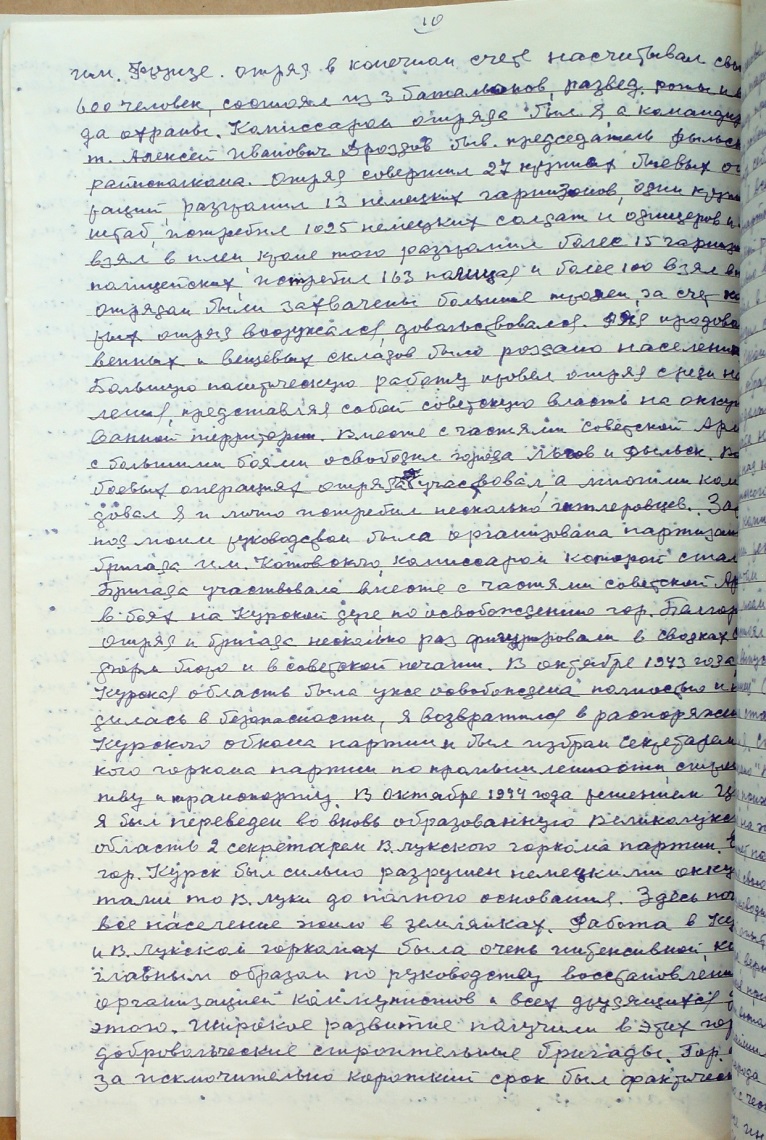 10
им. Фрунзе. отряд в конечном счете насчитывал свы
600 человек, состоял из 3 батальонов, развед. роты и в
да охраны. Комиссаром отряда был я, а командир
т. Алексей Иванович Дроздов быв. председатель Рыльск
райисполкома. Отряд совершил 27 крупных боевых оп
раций разгромил 13 немецких гарнизонов, один круп
штаб, истребил 1025 немецких солдат и офицеров и
взял в плен кроме того разгромил более 15 гарниз
полицейских, истребил 163 полицая и более 100 взял в п
отрядом были захвачены большие трофеи, за счет ко
рых отряд вооружался, довольствовался. Из продово
венных и вещевых складов было роздано населени
Большую политическую работу провел отряд среди на
ления, представляя собой советскую власть на окку
ванной территории. Вместе с частями советской Арм
с большими боями освободил города Льгов и Рыльск. Во
боевых операциях отряда участвовал а многими ком
довал я и лично истребил несколько гитлеровцев. За
под моим руководством была организована партизан
бригада им. Котовского, комиссаром которой стал
Бригада участвовала вместе с частями советской Ар
в боях на Курской дуге по освобождению гор. Белгор
отряд и бригада несколько раз фигурировали в сводках
форм бюро и в советской печати. В октябре 1943 года
Курская область была уже освобождена полностью и
дилась в безопасности, я возвратился в распоряжен
Курского обкома партии и был избран секретарем
кого горкома партии по промышленности строи
тву и транспорту. В октябре 1944 года решением Ц
я был переведен во вновь образованную Великолукс
область 2 секретарем В. Лукского горкома партии.
гор. Курск был сильно разрушен немецкими окку
тами то В. Луки до полного основания. Здесь поч
все население жило в землянках. Работа в Ку
и В. Лукском горкомах была очень интенсивной,
главным образом по руководству восстановлени
организацией коммунистов и всех трудящихся
этого. Широкое развитие получили в этих гор
добровольческие строительные бригады. Гор.
за исключительно короткий срок был фактичес